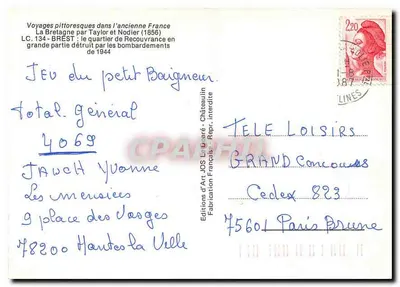 Voyages pittoresques dans l'ancienne France
La Bretagne par Taylor et Nodier (1856)
LC. 134 - BREST : le quartier de Recouvrance en
grande partie détruit par les bombardements
de 1944
2,20
Jeu du petit Baigneur
Total général
4069
JAUCH Yvonne
Les merisiers
9 place des Vosges
78200 Mantes la Ville
Editions d'Art JOS - Châteaulin
Fabrication Française - Repr. interdite
TELE LOISIRS
GRAND Concours
Cedex 823
75601 Paris Brune